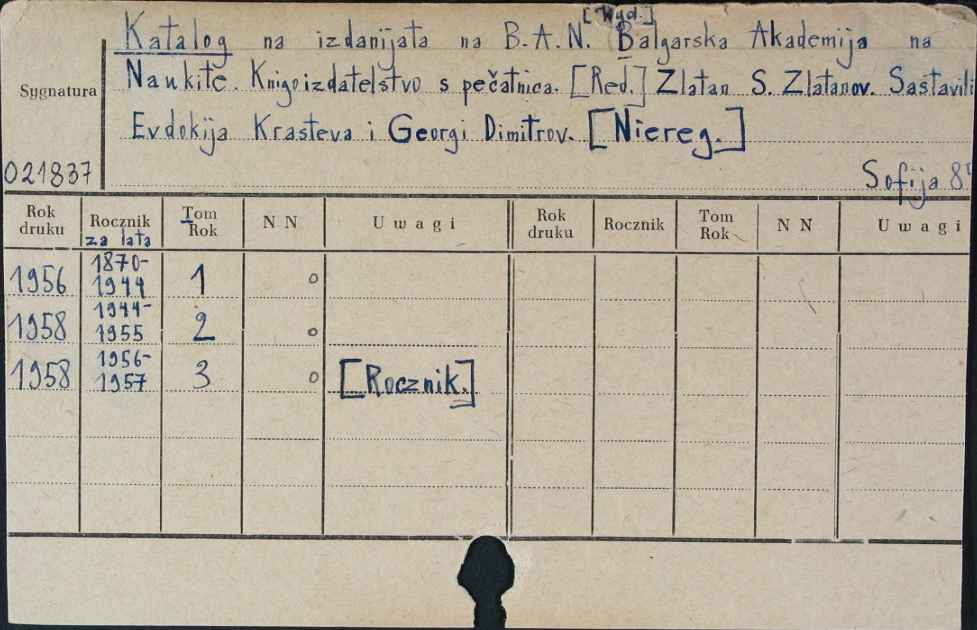 [Wyd.]
Katalog na izdanijata na B.A.N. Balgarska Akademija na
Naukite. Knigoizdatelstvo s pečatnica. [Red.] Zlatan S. Zlatanov. Sastavili
Sygnatura
Evdokija Krasteva i Georgi Dimitrov. [Niereg.]
021837 Sofija 8°
Rok druku Rocznik za lata Tom Rok N N Uwagi Rok druku Rocznik Tom Rok N N Uwagi
1956 1870-1944 1 o
1958 1944-1955 2 o
1958 1956-1957 3 o [Rocznik.]